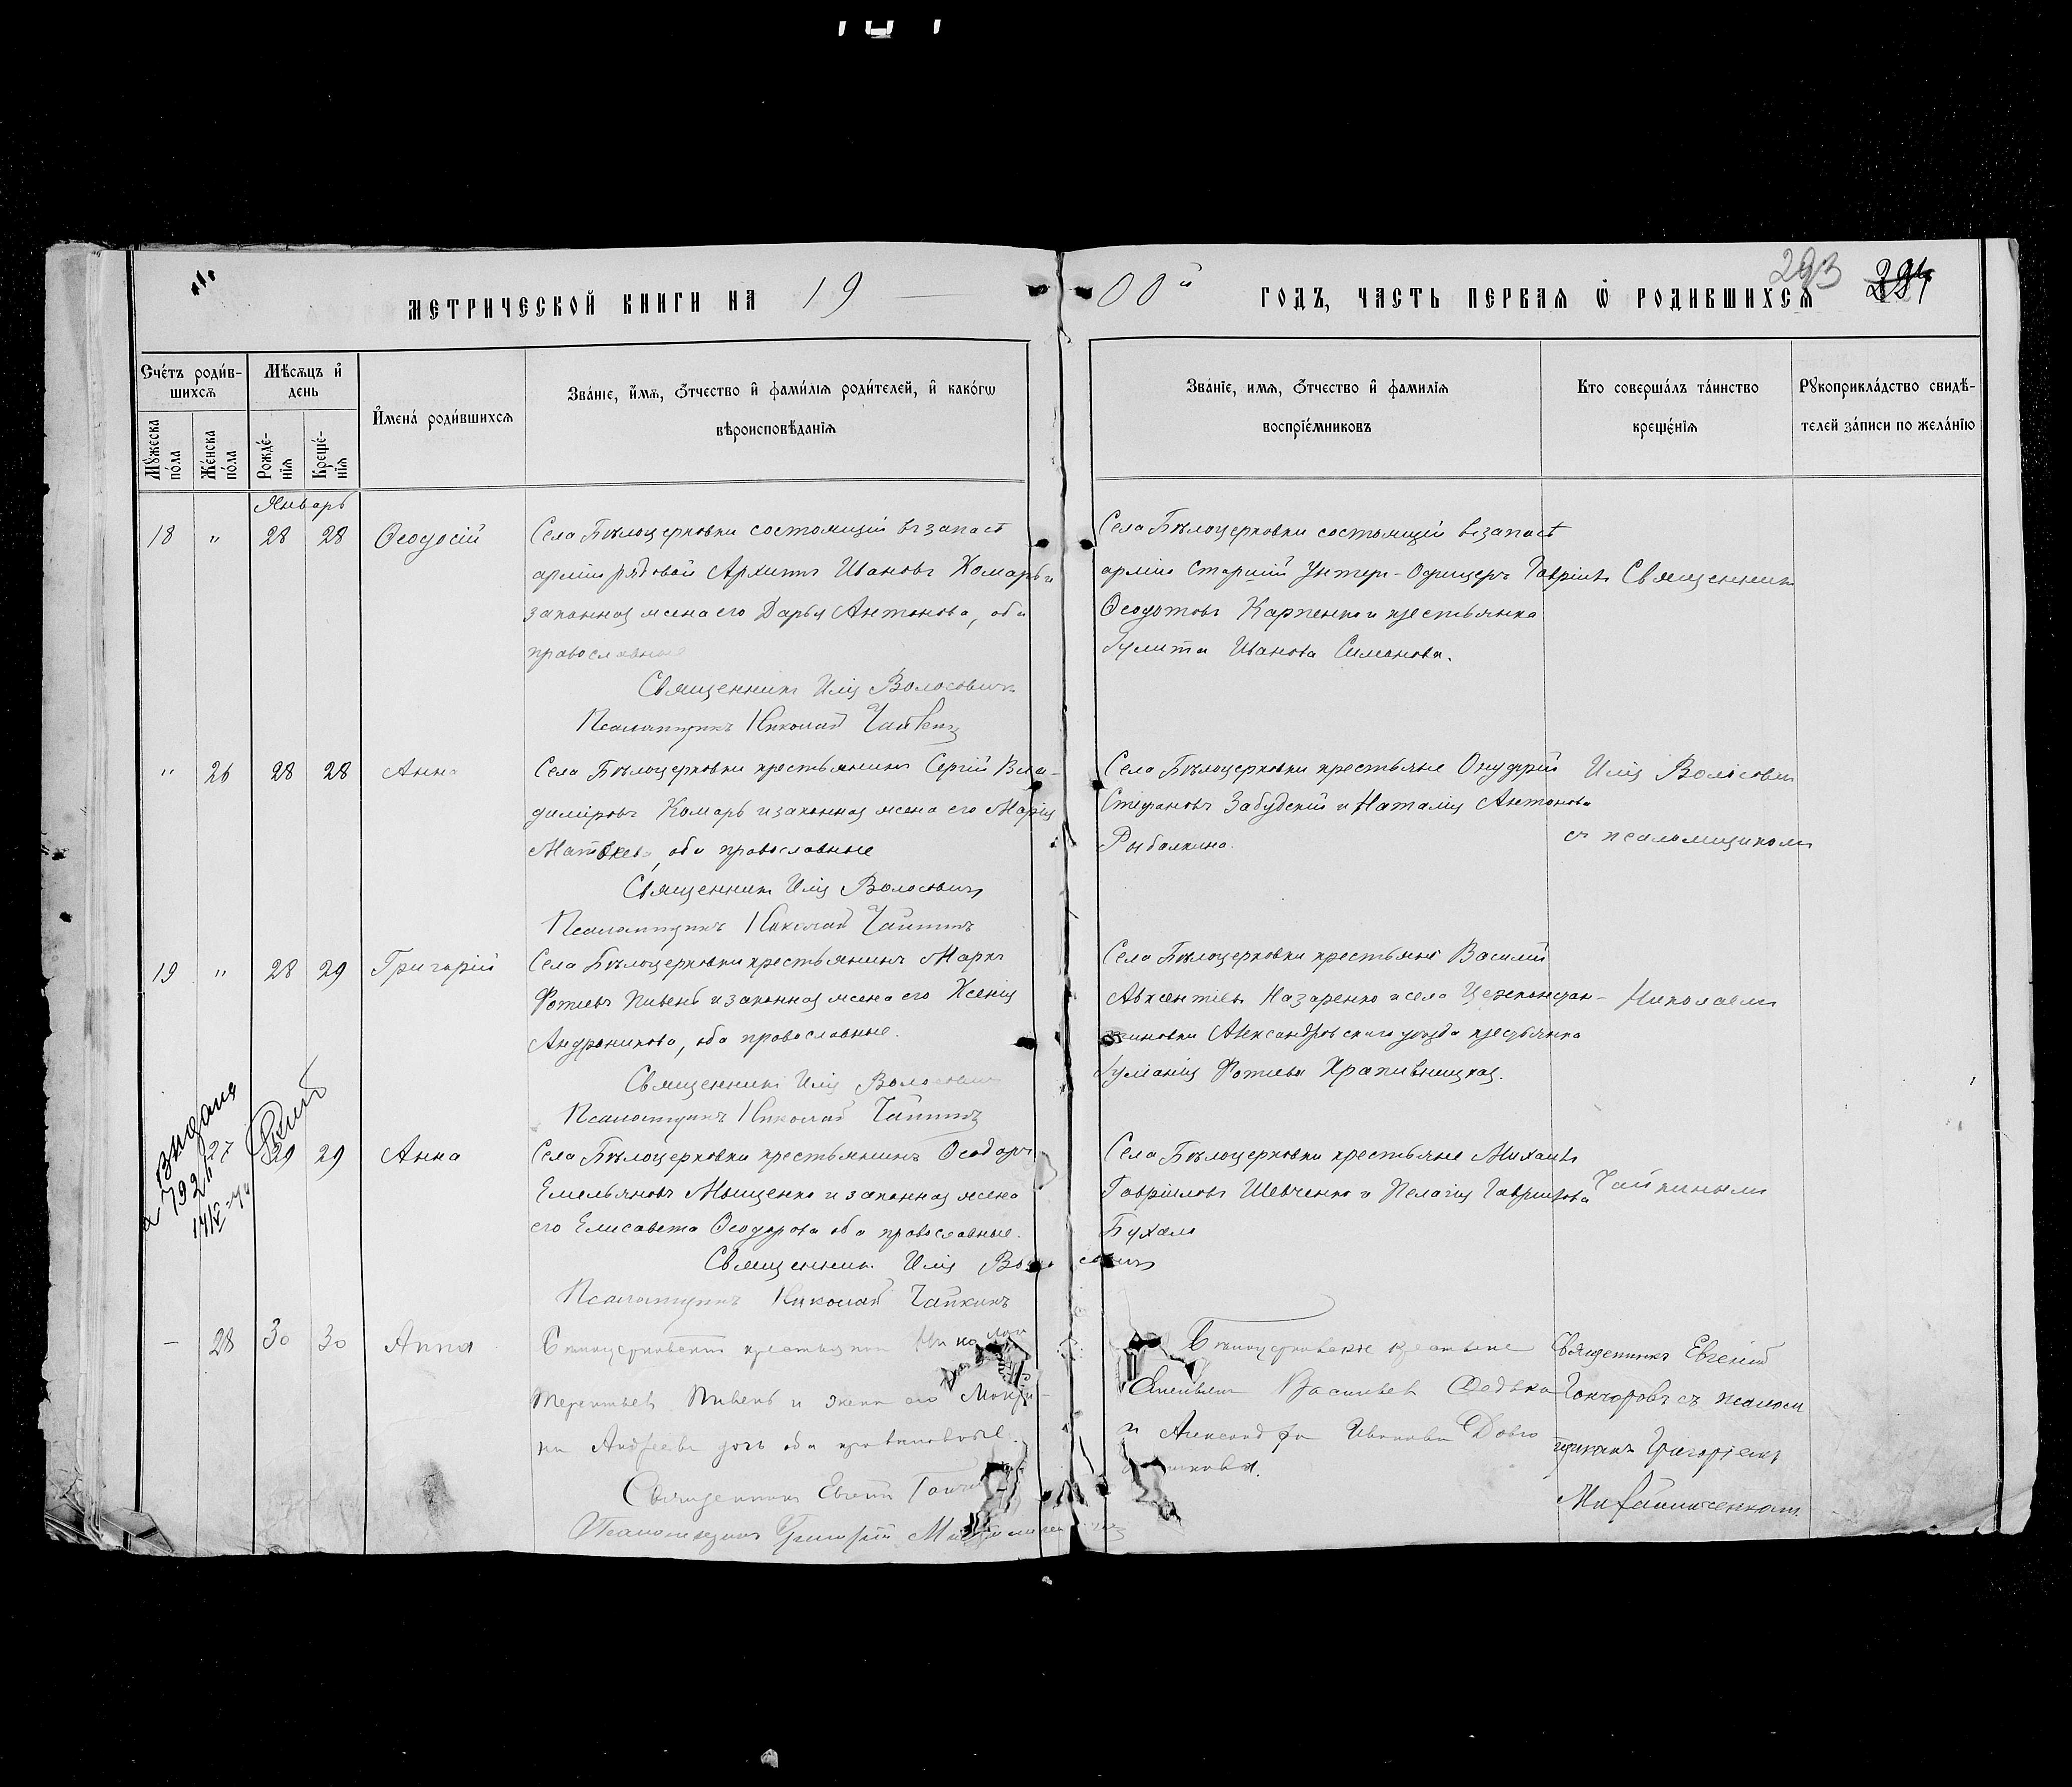 293
МЕТРИЧЕСКОЙ КНИГИ НА 19 00й ГОДЪ, ЧАСТЬ ПЕРВАЯ Ѿ РОДИВШИХСЯ
Счетъ родив-
шихся
Мѣсяцъ и
день
Мужеска
пола
Женска
пола
Рожде-
нія
Креще-
нія
Имена родившихся
Званіе, имя, отчество и фамилія родителей, и какогѡ
вѣроисповѣданія
Званіе, имя, отчество и фамилія
воспріемниковъ
Кто совершалъ таинство
крещенія
Рукоприкладство свидѣ-
телей записи по желанію
Январь
18 " 28 28 Ѳеодосій
Села Бѣлоцерковки состоящій въ запасѣ
арміи рядовой Архипъ Ивановъ Комарь и
законная жена его Дарья Антонова, оба
православные
Священникъ Илія Волосовичъ
Псаломщикъ Николай Чайкинъ
Села Бѣлоцерковки состоящій въ запасѣ
арміи Старшій Унтеръ-Офицеръ Гавріилъ
Ѳеодотовъ Карпенко и крестьянка
Іулита Иванова Симонова.
Священникъ
" 26 28 28 Анна
Села Бѣлоцерковки крестьянинъ Сергій Вла-
диміровъ Комарь и законная жена его Марія
Матвѣева, оба православные
Священникъ Илія Волосовичъ
Псаломщикъ Николай Чайкинъ
Села Бѣлоцерковки крестьяне Онуфрій
Стефановъ Забудскій и Наталія Антонова
Рыбалкина.
Илія Волосовичъ
съ псаломщикомъ
19 " 28 29 Григорій
Села Бѣлоцерковки крестьянинъ Маркъ
Фотіевъ Пивень и законная жена его Ксенія
Андроникова, оба православные.
Священникъ Илія Волосовичъ
Псаломщикъ Николай Чайкинъ
Села Бѣлоцерковки крестьяне Василій
Авксентіевъ Назаренко и села
Александровскаго уѣзда крестьянка
Іуліанія Фотіева Храпивницкая.
Николаемъ
Видана
29 29 Анна
Села Бѣлоцерковки крестьянинъ Ѳеодоръ
Емельяновъ Мищенко и законная жена
его Елисавета Ѳеодорова оба православные.
Священникъ Илія Волосовичъ
Псаломщикъ Николай Чайкинъ
Села Бѣлоцерковки крестьяне Михаилъ
Гавріиловъ Шевченко и Пелагія Гавріилова
Бухало
Чайкинымъ
– 28 30 30 Анна
Бѣлоцерковскій крестьянинъ Николай
Терентьевъ Пивень и жена его
Андреева оба православные.
Священникъ Евгеній
Псаломщикъ Григорій
Бѣлоцерковскіе крестьяне
Емельянъ Васильевъ Федько
и Александра Иванова
Священникъ Евгеній
Гончаровъ съ псалом
щикомъ Григоріемъ